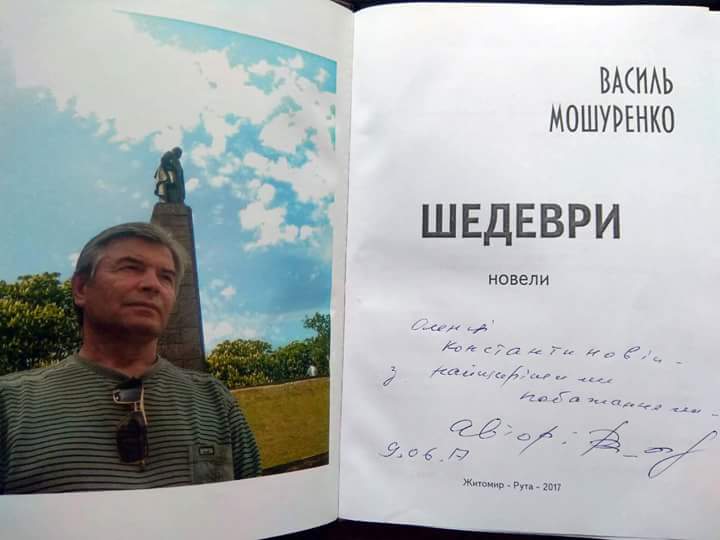 ВАСИЛЬ
МОШУРЕНКО
ШЕДЕВРИ
новели
Константинові
з найщирішими
побажаннями
автор
9.06.17
Житомир - Рута - 2017